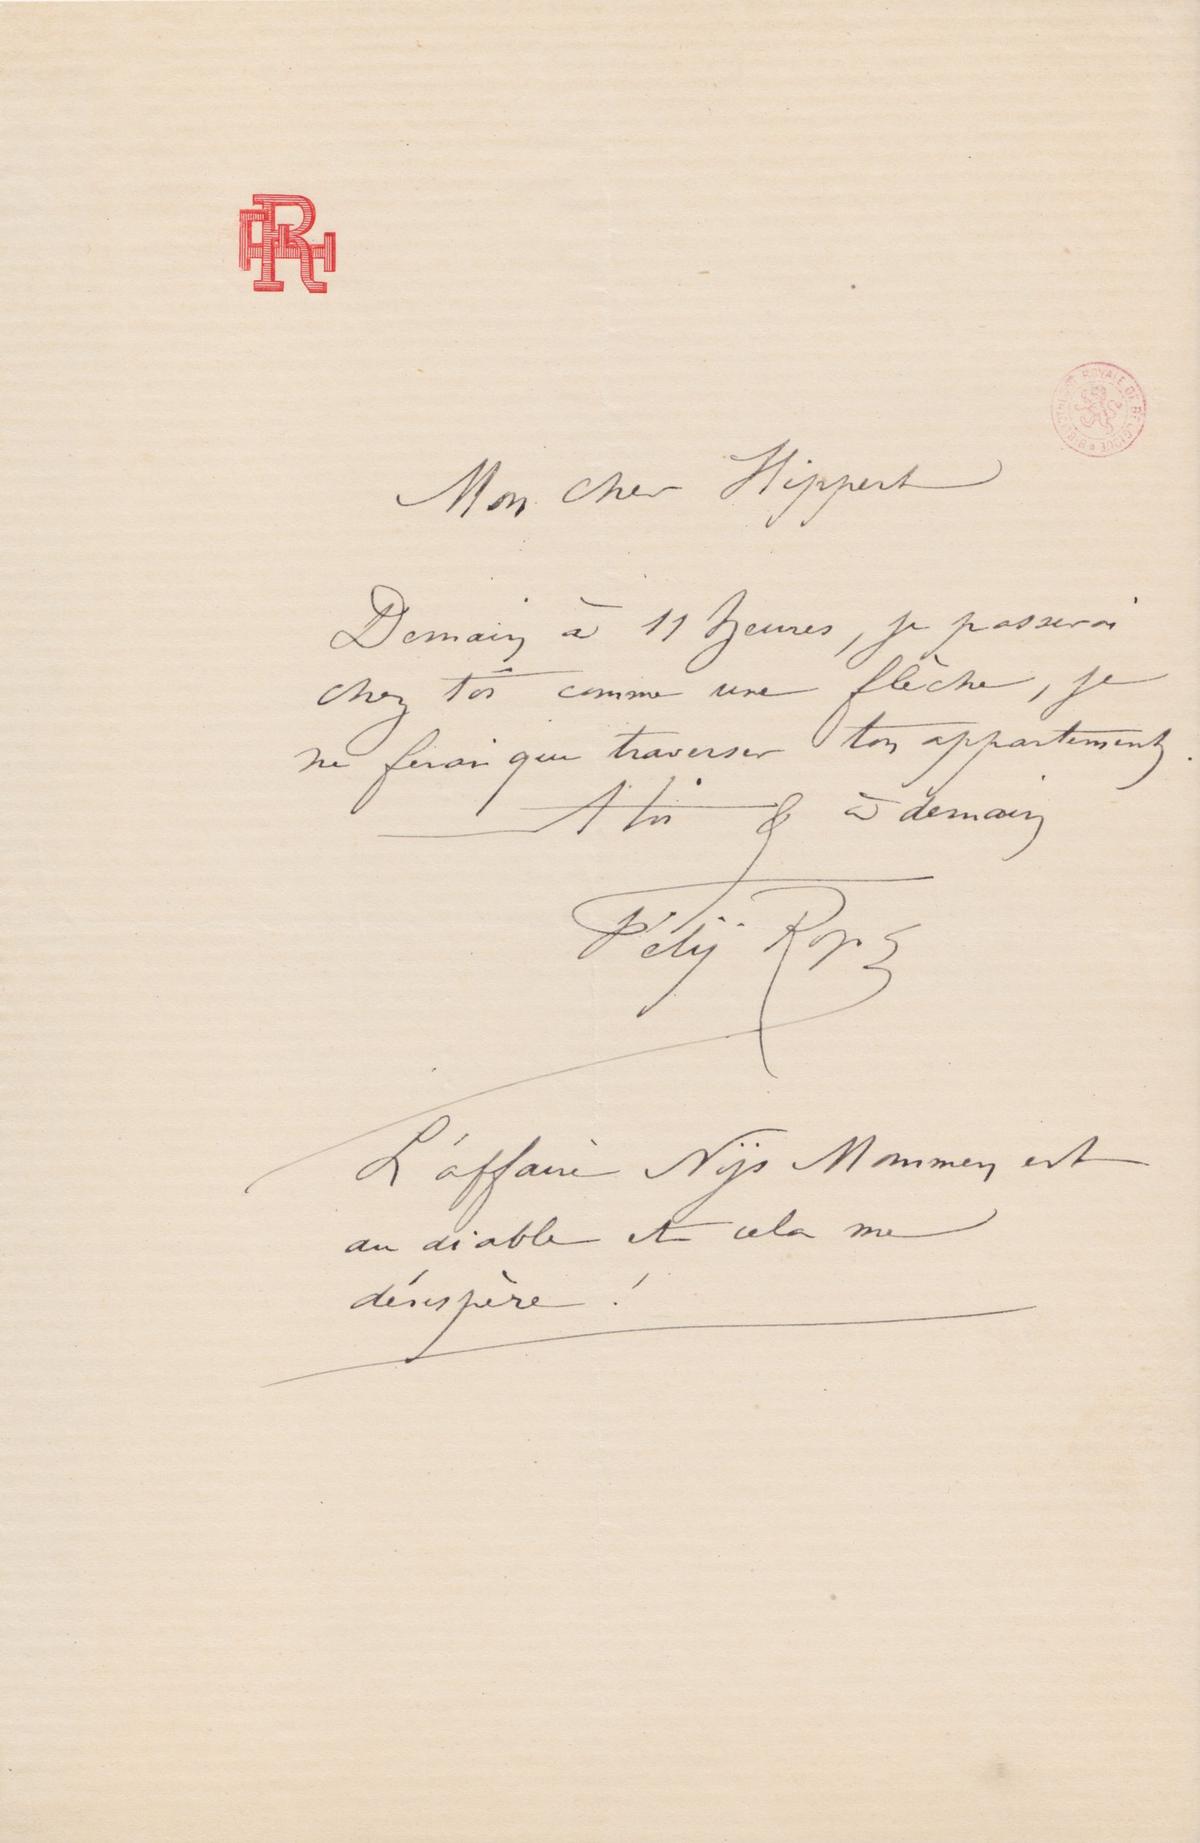 RH
BIBLIOTHEQUE ROYALE DE BELGIQUE
Mon cher Hippert
Demain à 11 heures, je passerai
chez toi comme une flèche, je
ne ferai que traverser ton appartement.
A toi & à demain
Fély Rops
L'affaire Nijs Mommen est
au diable et cela me
désespère !